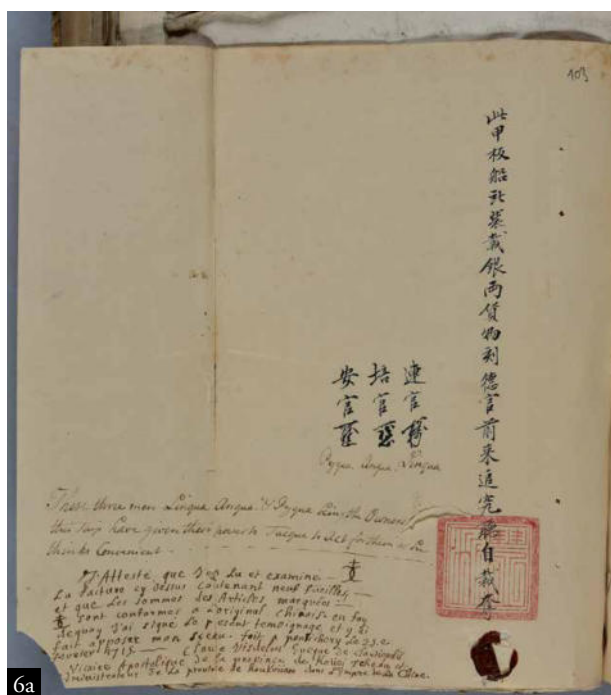 103
此甲板船	載銀両貨物刘德官前来追究	自裁奪
連官
培官
安官
Pyqua Anqua Linqua
These three men Linqua Anqua & Pyqua being the Owners
this ship have given their power to Taequa to Act for them as he
thinks Convenient
J'Atteste que J'ay Lu et examiné
La facture cy dessus Contenant neuf feuilles
et que Les sommes des Articles marquées
查 sont conformes a L'original Chinois en foy
dequoy J'ai signé Le present temoignage et y ai
fait apposer mon Sceau. fait a pontichery Le 23 e.
fevrier 1715
Claude Visdelou Eveque de Claudiopolis
Vicaire Apostolique de la province de
administrateur de La province de dans L'Empire de La Chine
6a